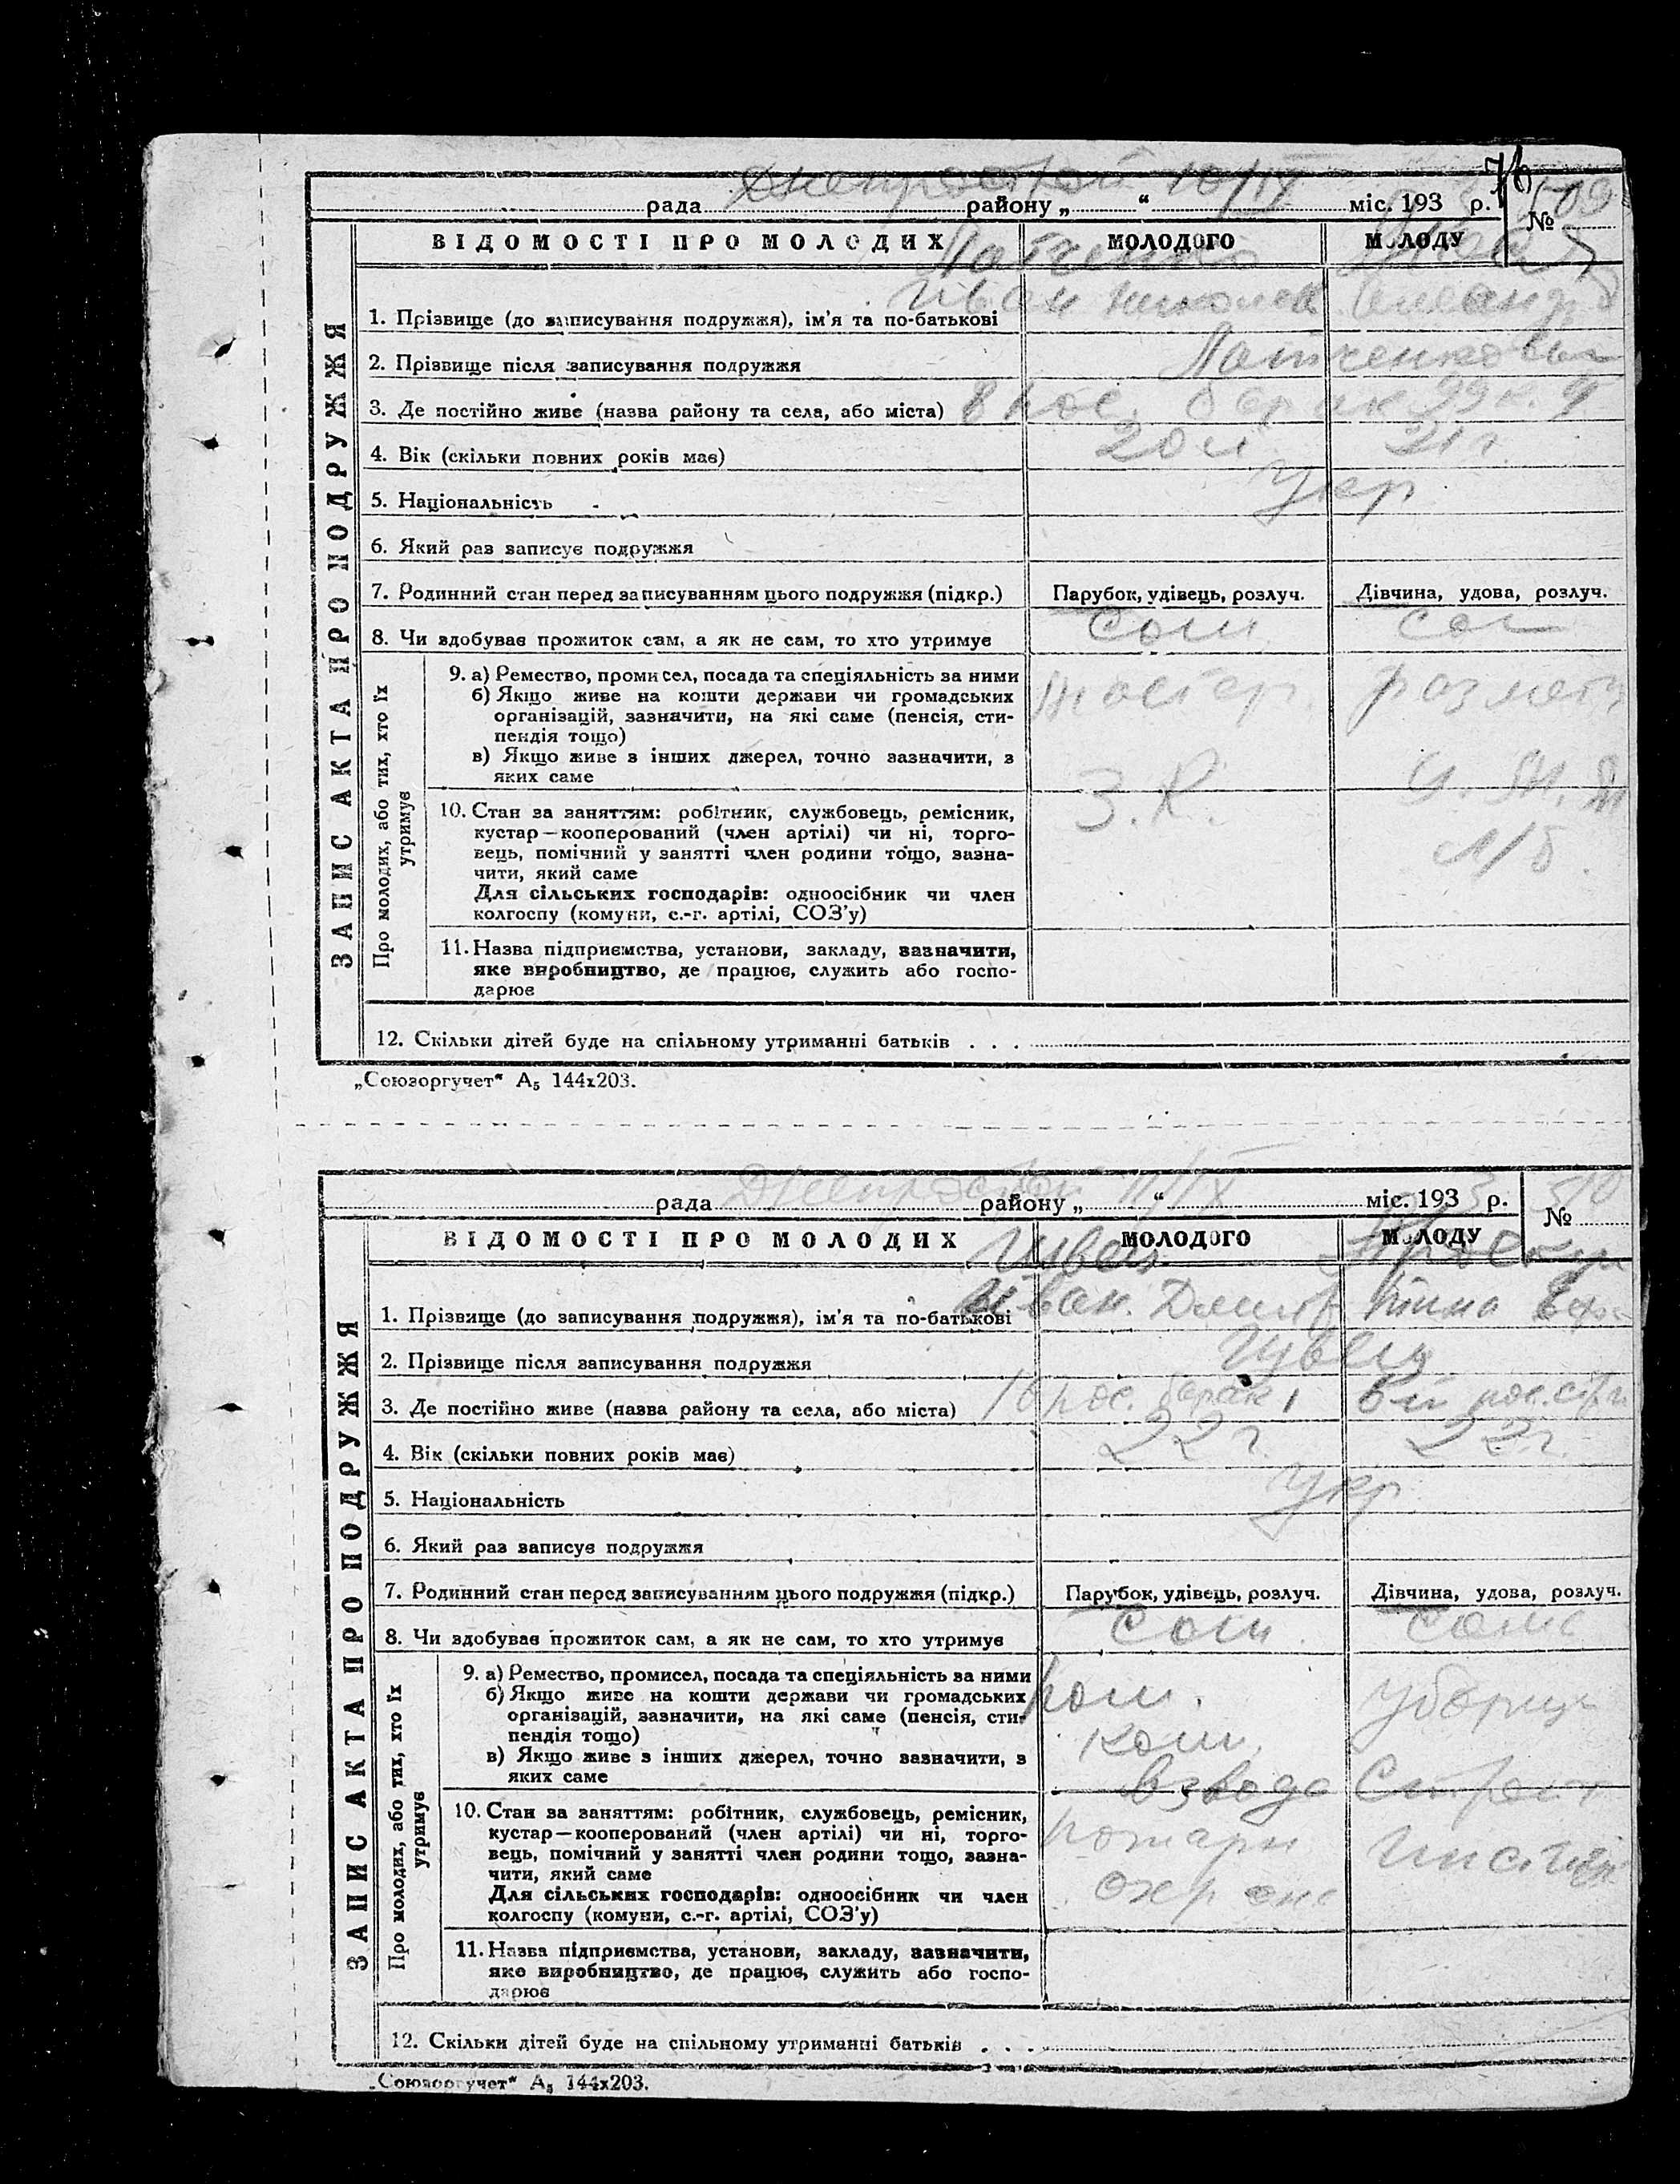 76
Днепрострой 10/IX
рада районy „ “ міс. 193 р.
№ 509
ВІДОМОСТІ ПРО МОЛОДИХ МОЛОДОГО МОЛОДУ
Иван Николов
1. Прізвище (до записування подружжя), ім'я та по-батькові
2. Прізвище після записування подружжя
3. Де постійно живе (назва району та села, або міста) 8 пос. барак 99 к. 9
4. Вік (скільки повних років має) 20 л 21 г.
5. Національність Укр
6. Який раз записує подружжя
7. Родинний стан перед записуванням цього подружжя (підкр.) Парубок, удівець, розлуч. Дівчина, удова, розлуч.
8. Чи здобуває прожиток сам, а як не сам, то хто утримує сам сам
ЗАПИС АКТА ПРО ПОДРУЖЖЯ
Про молодих, або тих, хто їх утримує
9. а) Ремество, промисел, посада та спеціяльність за ними
б) Якщо живе на кошти держави чи громадських
організацій, зазначити, на які саме (пенсія, сти-
пендія тощо)
в) Якщо живе з інших джерел, точно зазначити, з
яких саме
мастер
З. К.
10. Стан за заняттям: робітник, службовець, ремісник,
кустар—кооперований (член артілі) чи ні, торго-
вець, помічний у занятті член родини тощо, зазна-
чити, який саме
Для сільських господарів: одноосібник чи член
колгоспу (комуни, с.-г. артілі, СОЗ'у)
11. Назва підприємства, установи, закладу, зазначити,
яке виробництво, де працює, служить або госпо-
дарює
12. Скільки дітей буде на спільному утриманні батьків . . .
„Союзоргучет“ А₅ 144х203.
Днепрострой 11/IX
рада району „ “ міс. 193 3 р.
№ 510
ВІДОМОСТІ ПРО МОЛОДИХ МОЛОДОГО МОЛОДУ
Иван
1. Прізвище (до записування подружжя), ім'я та по-батькові
2. Прізвище після записування подружжя
3. Де постійно живе (назва району та села, або міста) пос. барак 1
4. Вік (скільки повних років має) 22 г. 22 г.
5. Національність Укр
6. Який раз записує подружжя
7. Родинний стан перед записуванням цього подружжя (підкр.) Парубок, удівець, розлуч. Дівчина, удова, розлуч.
8. Чи здобуває прожиток сам, а як не сам, то хто утримує сам
ЗАПИС АКТА ПРО ПОДРУЖЖЯ
Про молодих, або тих, хто їх утримує
9. а) Ремество, промисел, посада та спеціяльність за ними
б) Якщо живе на кошти держави чи громадських
організацій, зазначити, на які саме (пенсія, сти-
пендія тощо)
в) Якщо живе з інших джерел, точно зазначити, з
яких саме
пом.
ком.
взвода
пожарн
охраны
убориц
Строит
Инстит
10. Стан за заняттям: робітник, службовець, ремісник,
кустар—кооперований (член артілі) чи ні, торго-
вець, помічний у занятті член родини тощо, зазна-
чити, який саме
Для сільських господарів: одноосібник чи член
колгоспу (комуни, с.-г. артілі, СОЗ'у)
11. Назва підприємства, установи, закладу, зазначити,
яке виробництво, де працює, служить або госпо-
дарює
12. Скільки дітей буде на спільному утриманні батьків . . .
„Союзоргучет“ А₅ 144х203.